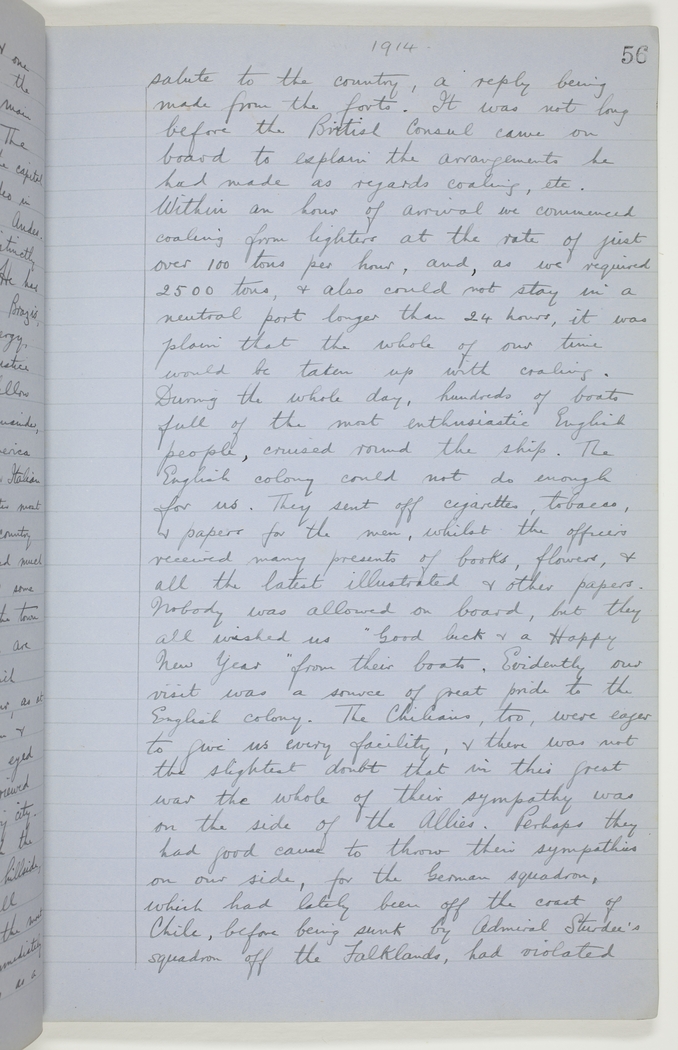 1914.
56
salute to the country, a reply being
made from the forts. It was not long
before the British Consul came on
board to explain the arrangements he
had made as regards coaling, etc.
Within an hour of arrival we commenced
coaling from lighters at the rate of just
over 100 tons per hour, and, as we required
2500 tons, & also could not stay in a
neutral port longer than 24 hours, it was
plain that the whole of our time
would be taken up with coaling.
During the whole day, hundreds of boats
full of the most enthusiastic English
people, cruised round the ship. The
English colony could not do enough
for us. They sent off cigarettes, tobacco,
& papers for the men, whilst the officers
received many presents of books, flowers, &
all the latest illustrated & other papers.
Nobody was allowed on board, but they
all wished us "Good luck & a Happy
New Year" from their boats. Evidently our
visit was a source of great pride to the
English colony. The Chilians, too, were eager
to give us every facility, & there was not
the slightest doubt that in this great
war the whole of their sympathy was
on the side of the Allies. Perhaps they
had good cause to throw their sympathies
on our side, for the German squadron,
which had lately been off the coast of
Chile, before being sunk by Admiral Sturdee's
squadron off the Falklands, had violated
& one
the
men
The
capital
in
Andes.
He has
Brazil,
Italian
most
country
much
some
the town
are
as at
&
eyed
city.
the
hillside,
the most
immediately
as a